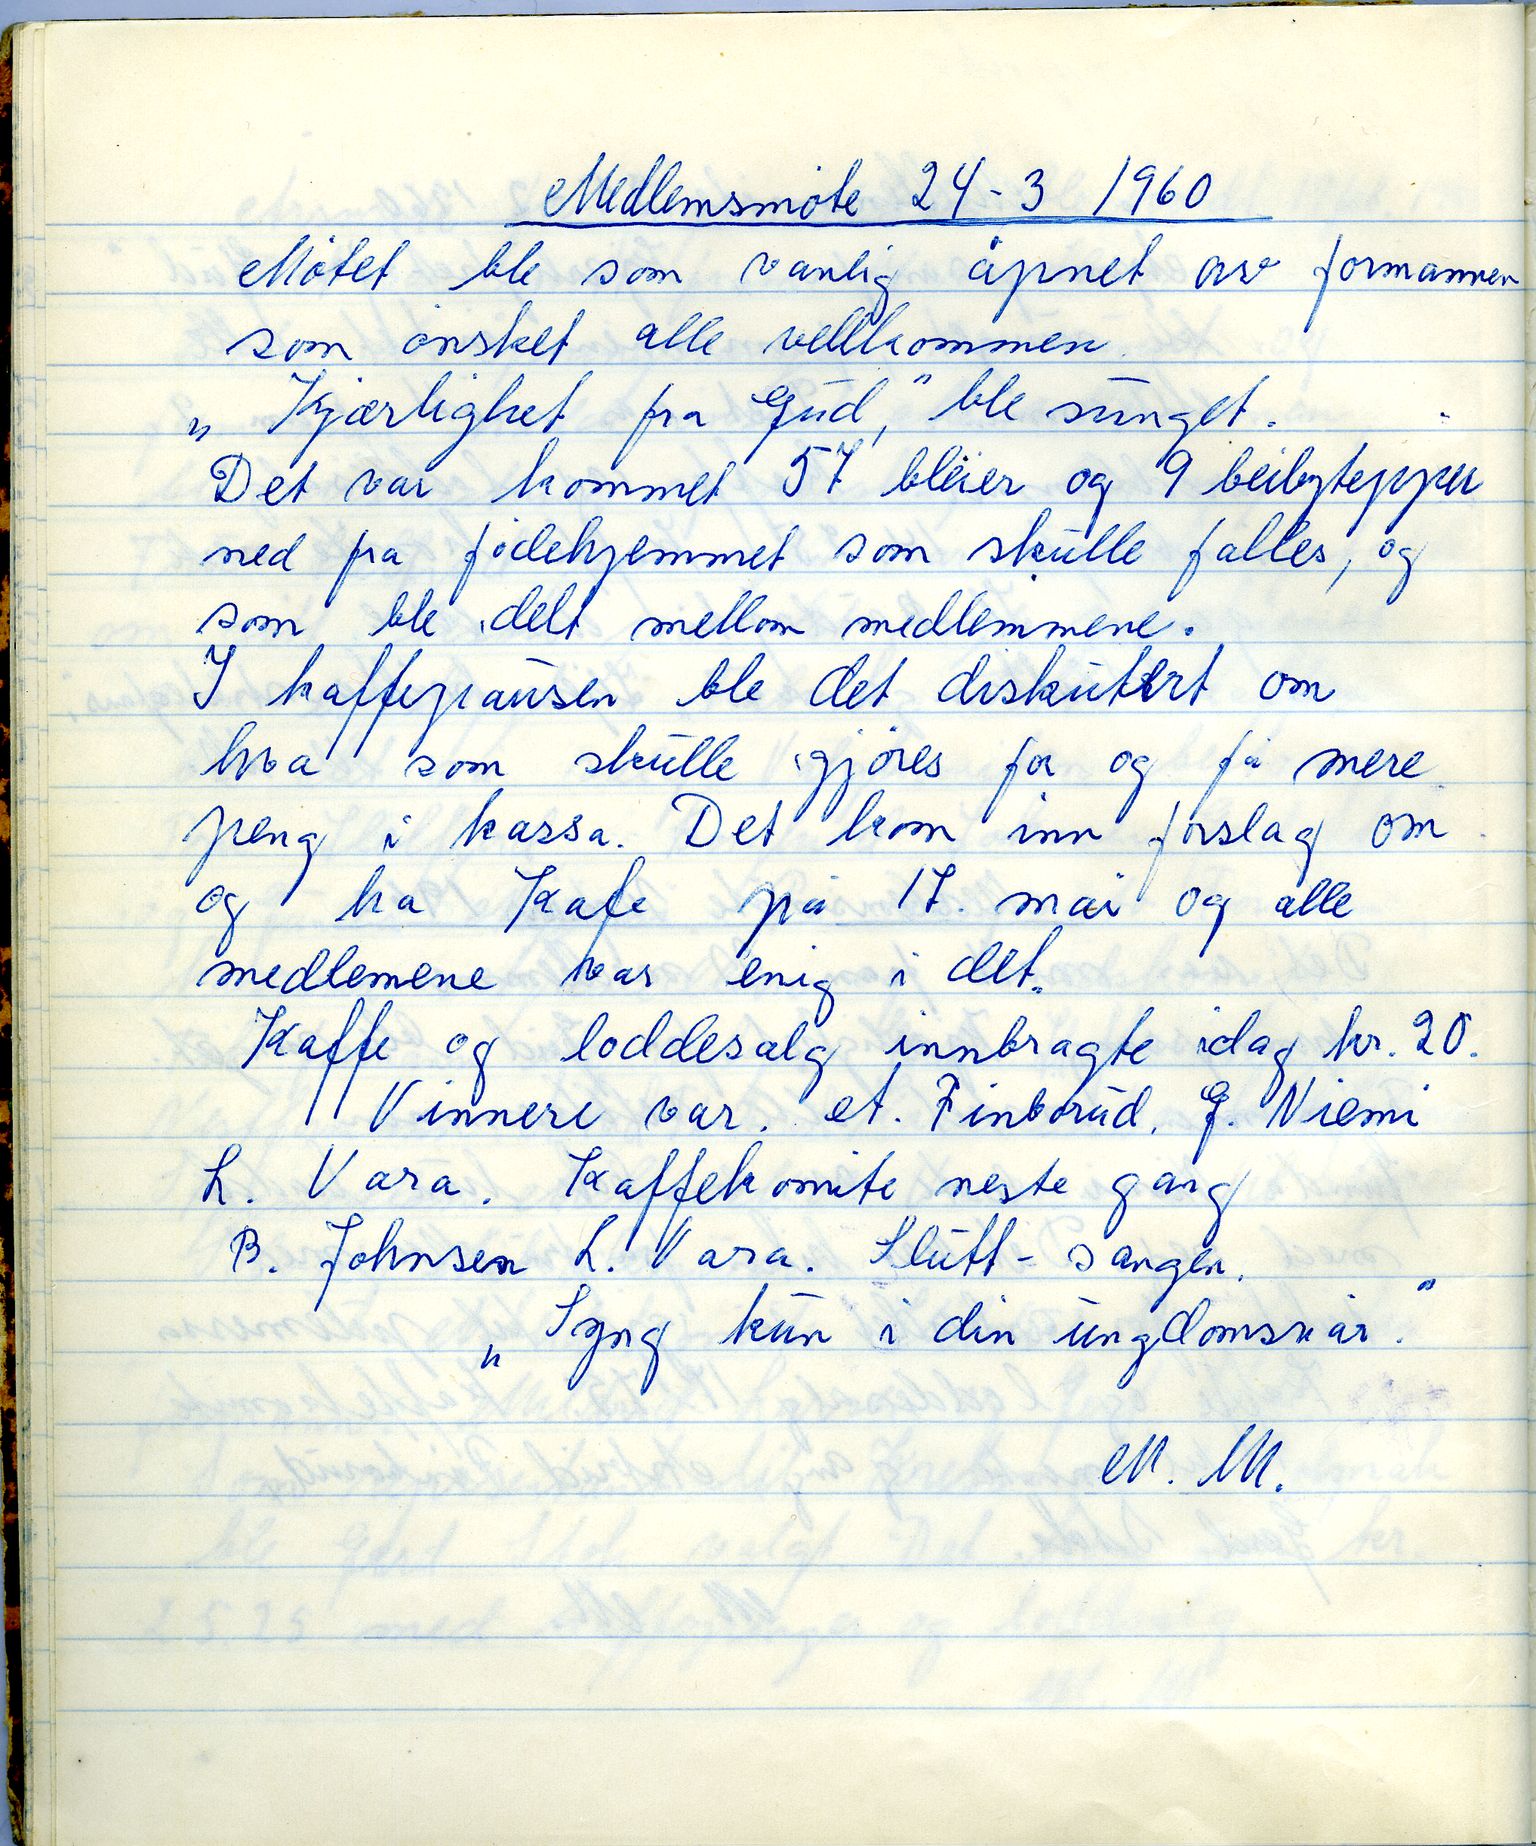 Medlemsmøte 24-3 1960
Møtet ble som vanlig åpnet av formannen
som ønsket alle vellkommen.
„Kjærlighet fra Gud," ble sunget.
Det var kommet 57 bleier og 9 beibytepper
ned fra fødehjemmet som skulle falles, og
som ble delt mellom medlemmene.
I kaffepausen ble det diskutert om
hva som skulle gjøres for og få mere
peng i kassa. Det kom inn forslag om
og ha Kafe på 17. mai og alle
medlemene var enig i det.
Kaffe og loddesalg innbragte idag kr. 20.
Vinnere var. A. Finborud. G. Niemi
L. Vara. Kaffekomite neste gang
B. Johnsen L. Vara. Slutt-sangen.
„Syng kun i din ungdomsvår."
M. M.